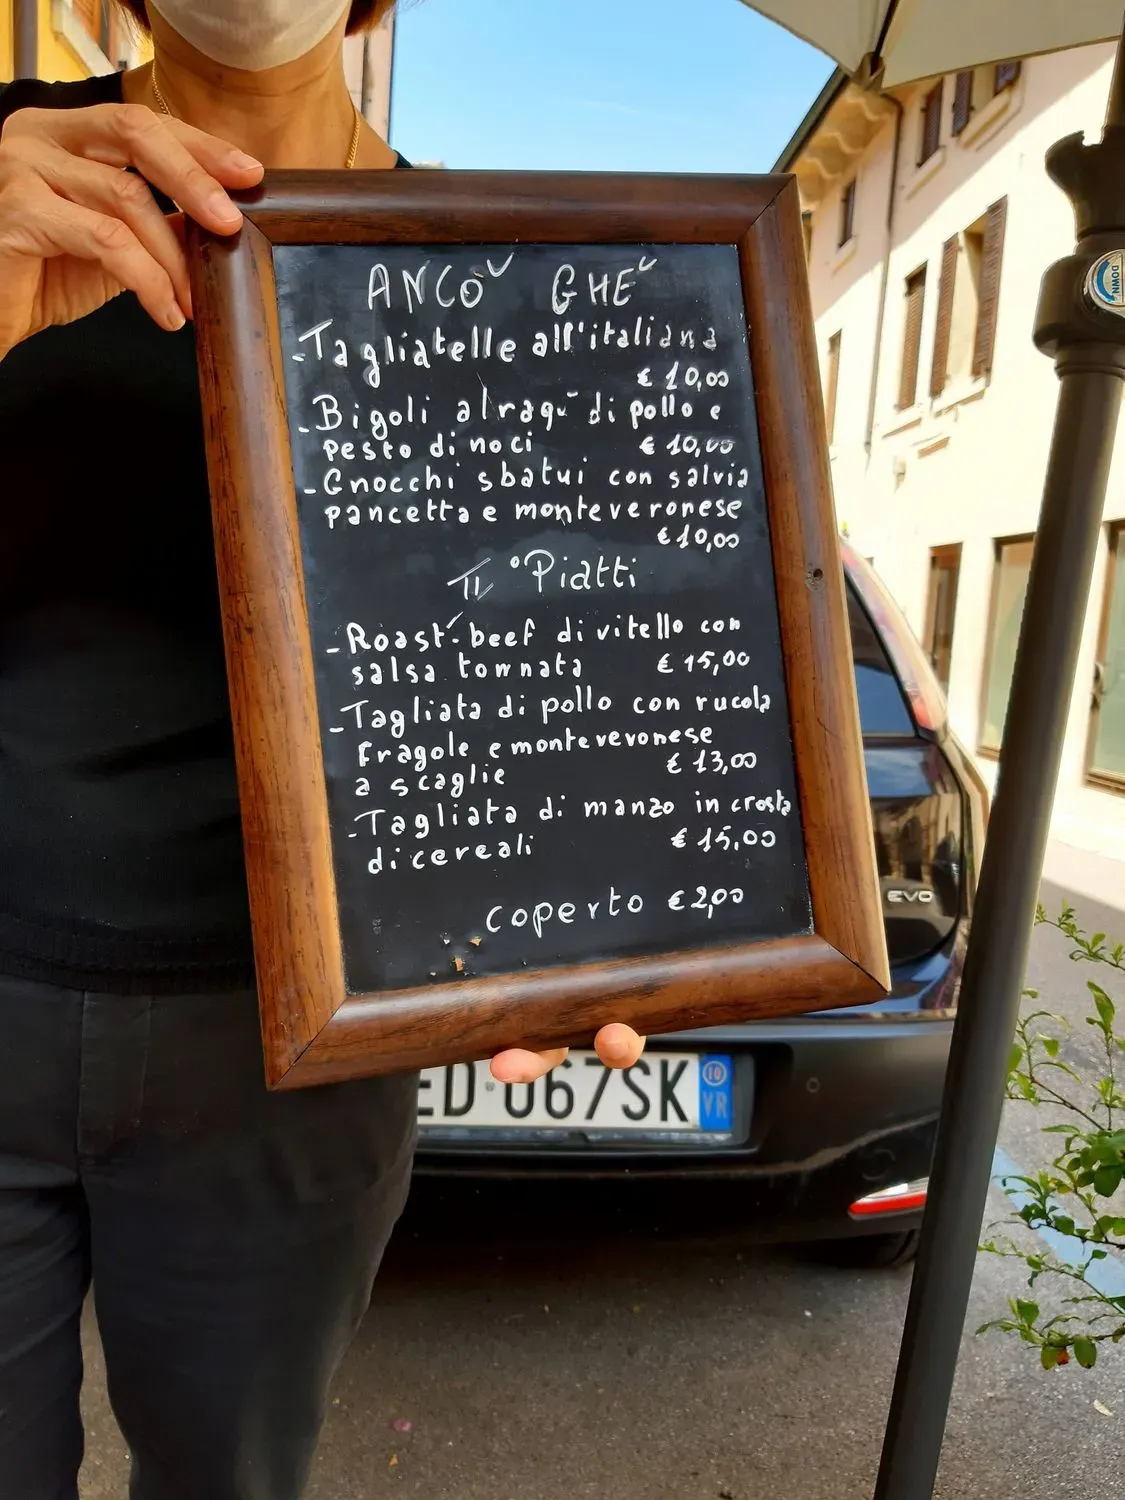 ANCÒ GHE'
- Tagliatelle all'italiana
€ 10,00
- Bigoli al ragù di pollo e
pesto di noci € 10,00
- Gnocchi sbatui con salvia
pancetta e monteveronese
€ 10,00
II° Piatti
- Roast-beef di vitello con
salsa tonnata € 15,00
- Tagliata di pollo con rucola
fragole e monteveronese
a scaglie € 13,00
- Tagliata di manzo in crosta
di cereali € 15,00
coperto € 2,00
EVO
ED 067SK
10
VR
DOWN